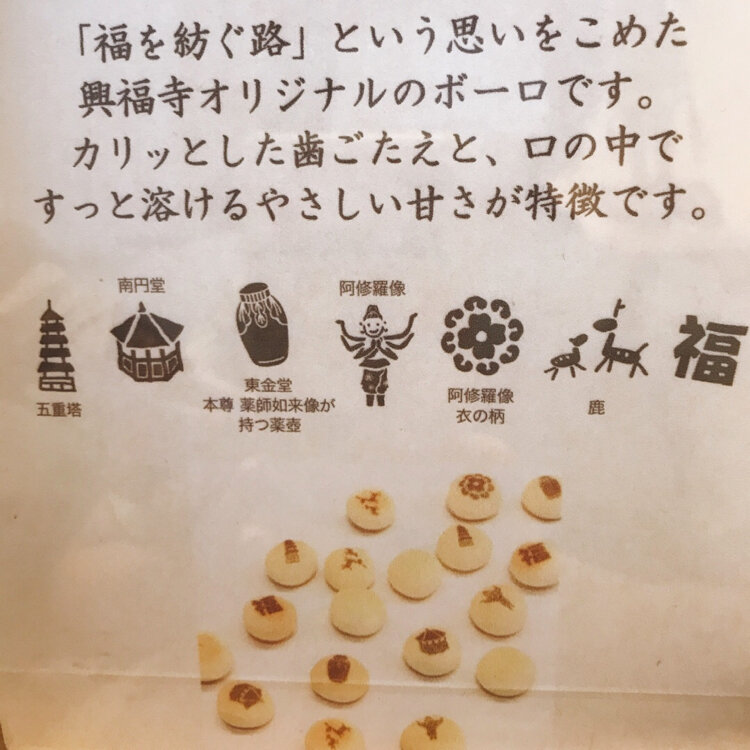 「福を紡ぐ路」という思いをこめた
興福寺オリジナルのボーロです。
カリッとした歯ごたえと、口の中で
すっと溶けるやさしい甘さが特徴です。
五重塔
南円堂
東金堂
本尊 薬師如来像が
持つ薬壺
阿修羅像
阿修羅像
衣の柄
鹿
福